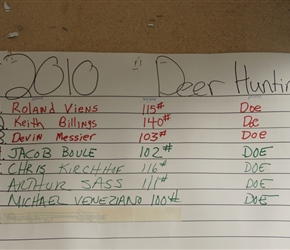 2010 Deer Huntin
Roland Viens 115# Doe
Keith Billings 140# Doe
Devin Messier 103# Doe
JACOB BOULE 102# DOE
CHRIS KIRCHHOF 116# DOE
ARTHUR SASS 111# DOE
MICHAEL VENEZIANO 100# DOE